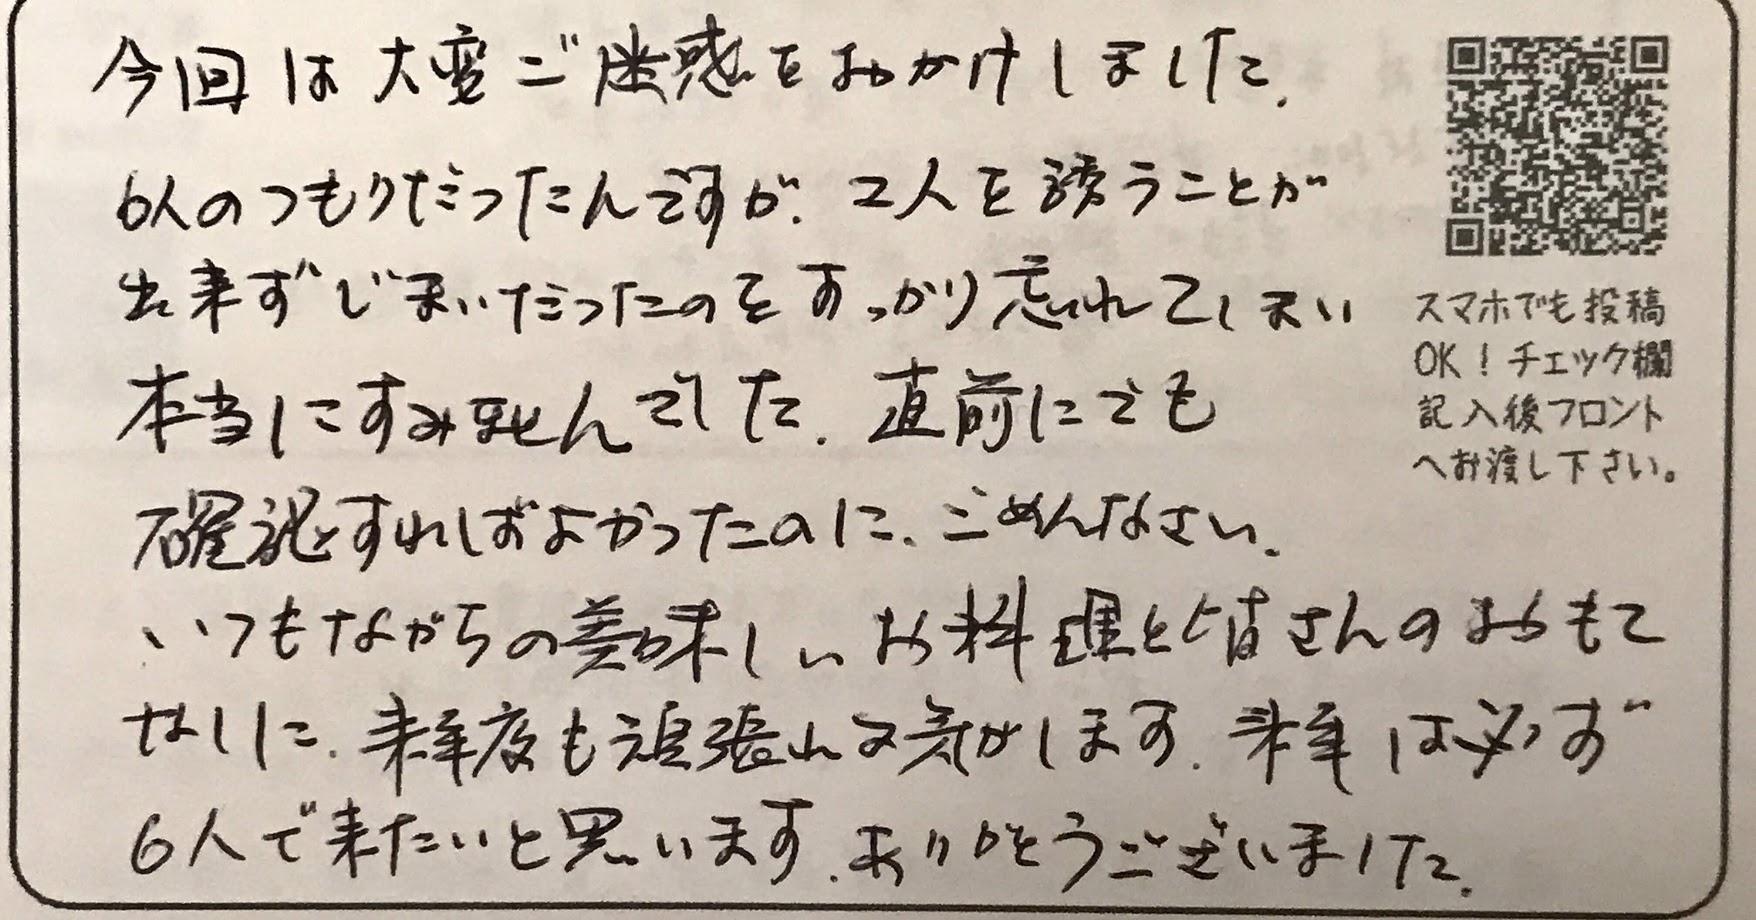 今回は大変ご迷惑をおかけしました.
6人のつもりだったんですが、2人を誘うことが
出来ずじまいだったのをすっかり忘れてしまい
本当にすみませんでした. 直前にでも
確認すればよかったのに、ごめんなさい.
いつもながらの美味しいお料理と皆さんのおもて
なしに、来年度も頑張れる気がします. 来年は必ず
6人で来たいと思います. ありがとうございました.
スマホでも投稿
OK！チェック欄
記入後フロント
へお渡し下さい。